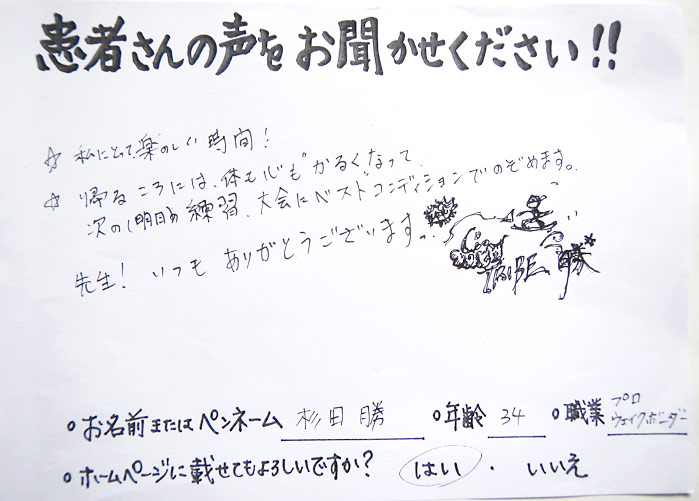 患者さんの声をお聞かせください!!
☆ 私にとって楽しい時間!
☆ 帰るころには、体も心も"かるくなって
次の(明日の)練習、大会にベストコンディションでのぞめます。
先生! いつもありがとうございますっ。
勝
・お名前またはペンネーム 杉田 勝 ・年齢 34 ・職業 プロウェイクボーダー
・ホームページに載せてもよろしいですか? はい ・ いいえ